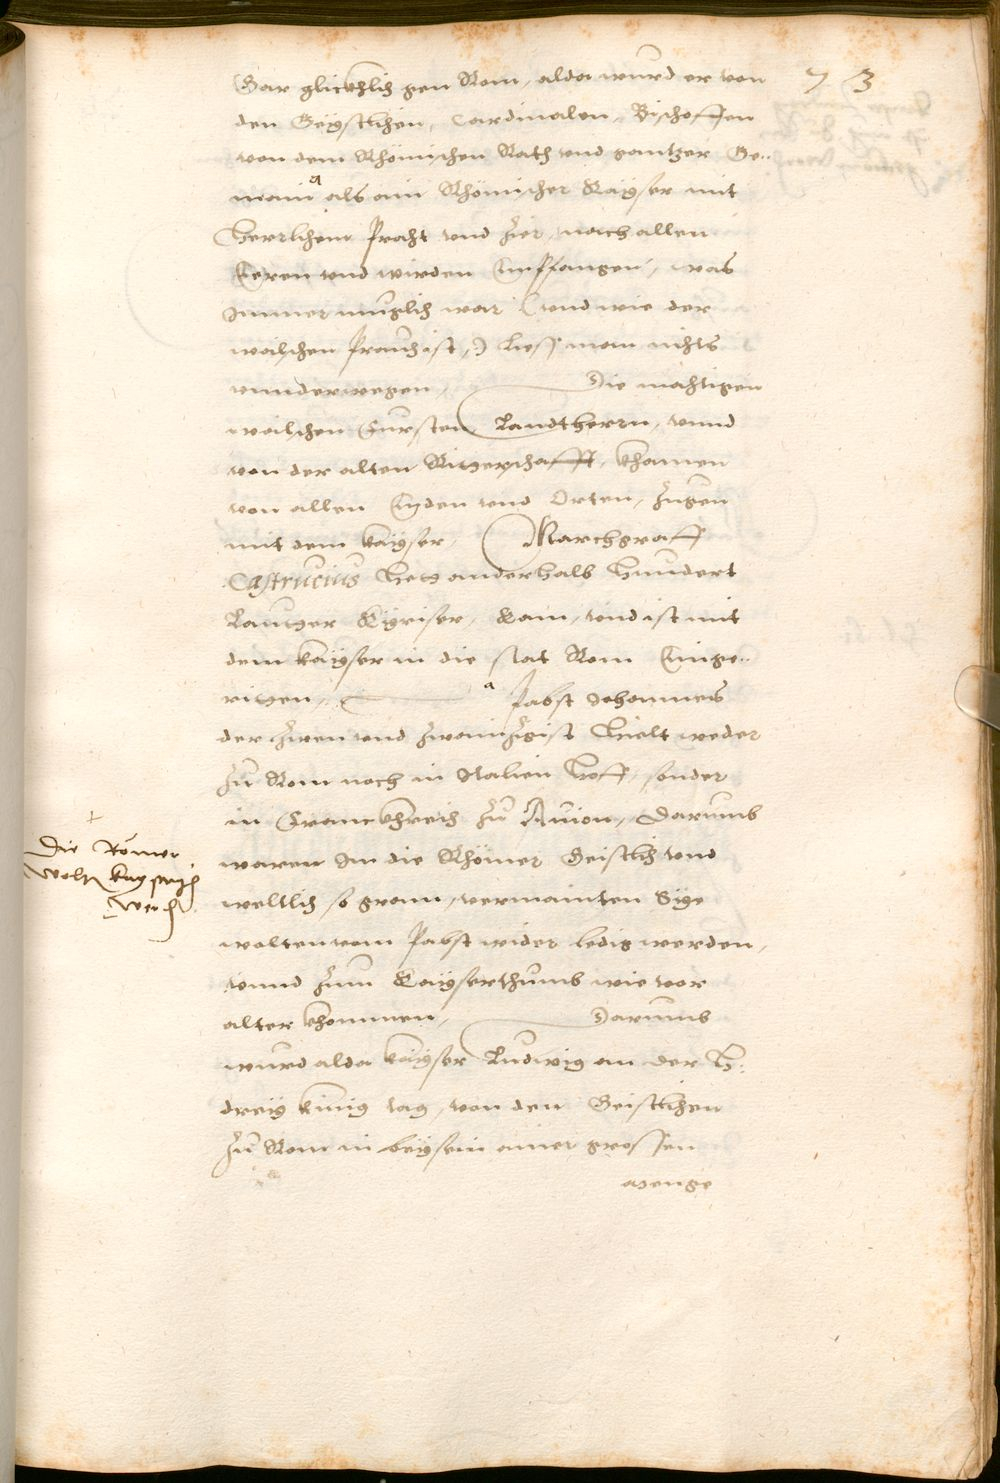 73
Gar glickhlich gen Rom, alda wurd er von
den Geystlichen, Cardinalen, Bischoffen
von dem Rhömischen Rath vnd gantzer Ge„
main als ain Rhömischer Kayser mit
herrlichem Pracht vnd Zier, nach allen
Eeren vnd wirden Empfangen, was
Immer muglich war (vnd wie der
walschen Prauch ist,) liess man nichts
vnnderwegen, Die machtigen
walschen Fursten Landtherrn, vnnd
von der alten Ritterschafft, khamen
von allen Enden vnd Orten, Zugen
mit dem kayser, Marchgraff
Castrucius het anderhalb hundert
Lautter Kyriser, kam, vnd ist mit
dem kayser in die stat Rom Einge„
ritten, Pabst Johannes
der Zwen vnd Zwainzigist hielt weder
Zu Rom noch in Italien hoff, sonder
in Franckhreich Zu Auion, Darumb
waren Im die Rhömer Geistlich vnd
weltlich so gram, vermainten Sy
wolten vom Pabst wider ledig werden,
vnnd Zum Kayserthumb wie vor
alter khommen, Darumb
wurd alda kayser Ludwig an der H:
dreÿ künig tag, von den Geistlichen
Zu Rom in beysein ainer grossen
menge
Die Römer
wolten kayserisch
werden